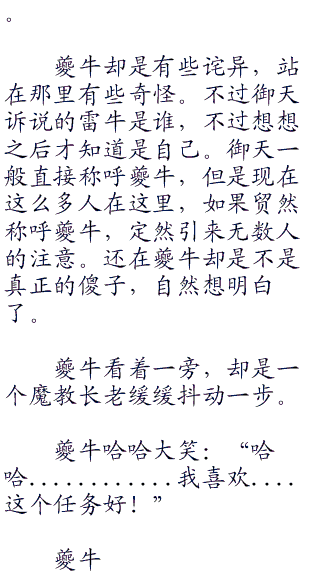 。
夔牛却是有些诧异，站
在那里有些奇怪。不过御天
诉说的雷牛是谁，不过想想
之后才知道是自己。御天一
般直接称呼夔牛，但是现在
这么多人在这里，如果贸然
称呼夔牛，定然引来无数人
的注意。还在夔牛却是不是
真正的傻子，自然想明白
了。
夔牛看着一旁，却是一
个魔教长老缓缓抖动一步。
夔牛哈哈大笑：“哈
哈............我喜欢....
这个任务好！”
夔牛